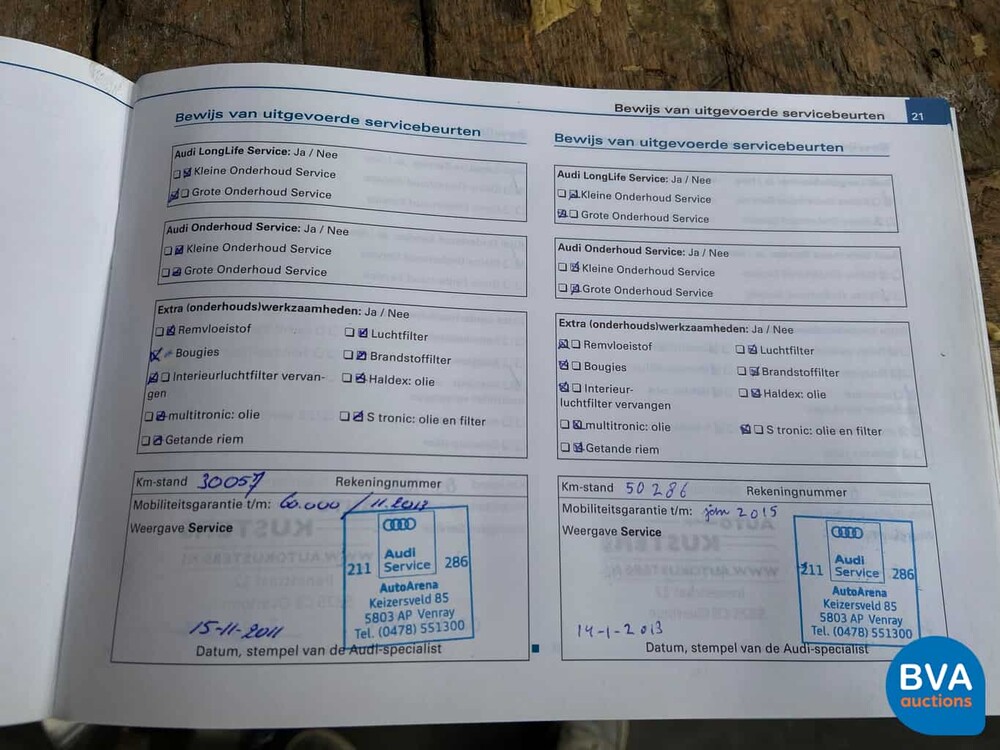 Bewijs van uitgevoerde servicebeurten 21
Bewijs van uitgevoerde servicebeurten
Audi LongLife Service: Ja / Nee
Kleine Onderhoud Service
Grote Onderhoud Service
Audi Onderhoud Service: Ja / Nee
Kleine Onderhoud Service
Grote Onderhoud Service
Extra (onderhouds)werkzaamheden: Ja / Nee
Remvloeistof
Luchtfilter
Bougies
Brandstoffilter
Interieurluchtfilter vervan-
gen
Haldex: olie
multitronic: olie
S tronic: olie en filter
Getande riem
Km-stand 30057 Rekeningnummer
Mobiliteitsgarantie t/m: 60.000 / 11.2013
Weergave Service
Audi
Service
211 286
AutoArena
Keizersveld 85
5803 AP Venray
Tel. (0478) 551300
15-11-2011
Datum, stempel van de Audi-specialist
Bewijs van uitgevoerde servicebeurten
Audi LongLife Service: Ja / Nee
Kleine Onderhoud Service
Grote Onderhoud Service
Audi Onderhoud Service: Ja / Nee
Kleine Onderhoud Service
Grote Onderhoud Service
Extra (onderhouds)werkzaamheden: Ja / Nee
Remvloeistof
Luchtfilter
Bougies
Brandstoffilter
Interieur-
luchtfilter vervangen
Haldex: olie
multitronic: olie
S tronic: olie en filter
Getande riem
Km-stand 50286 Rekeningnummer
Mobiliteitsgarantie t/m: 2015
Weergave Service
Audi
Service
211 286
AutoArena
Keizersveld 85
5803 AP Venray
Tel. (0478) 551300
14-1-2013
Datum, stempel van de Audi-specialist
BVA
auctions